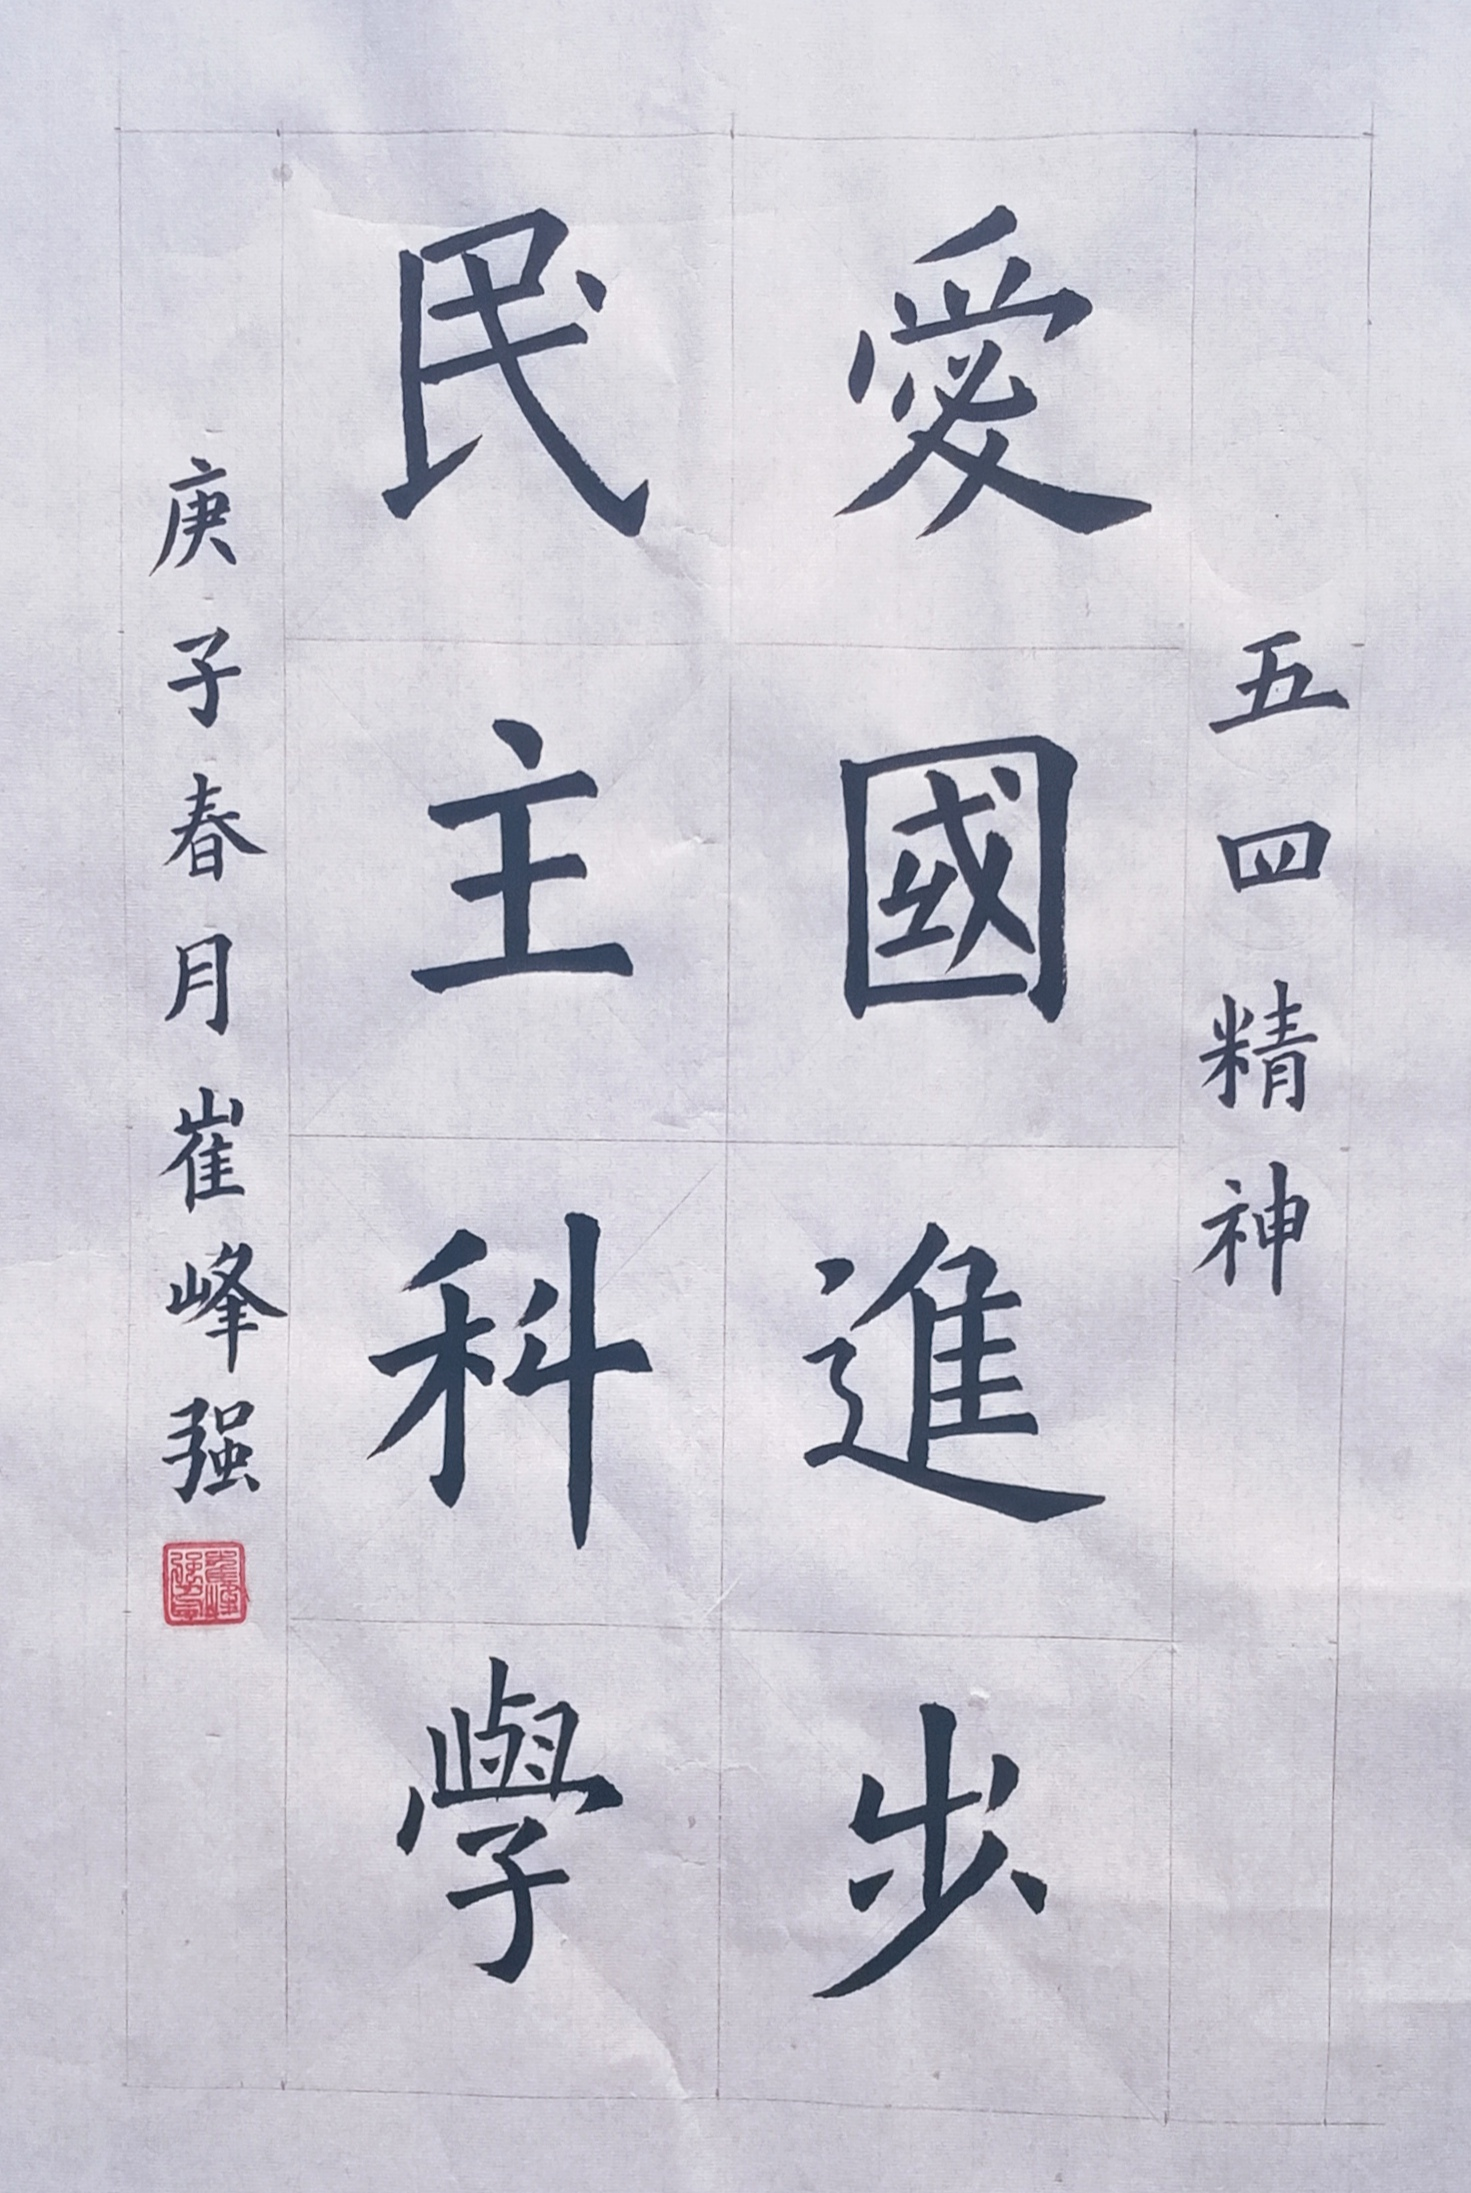 五四精神
愛國進步
民主科學
庚子春月崔峰强